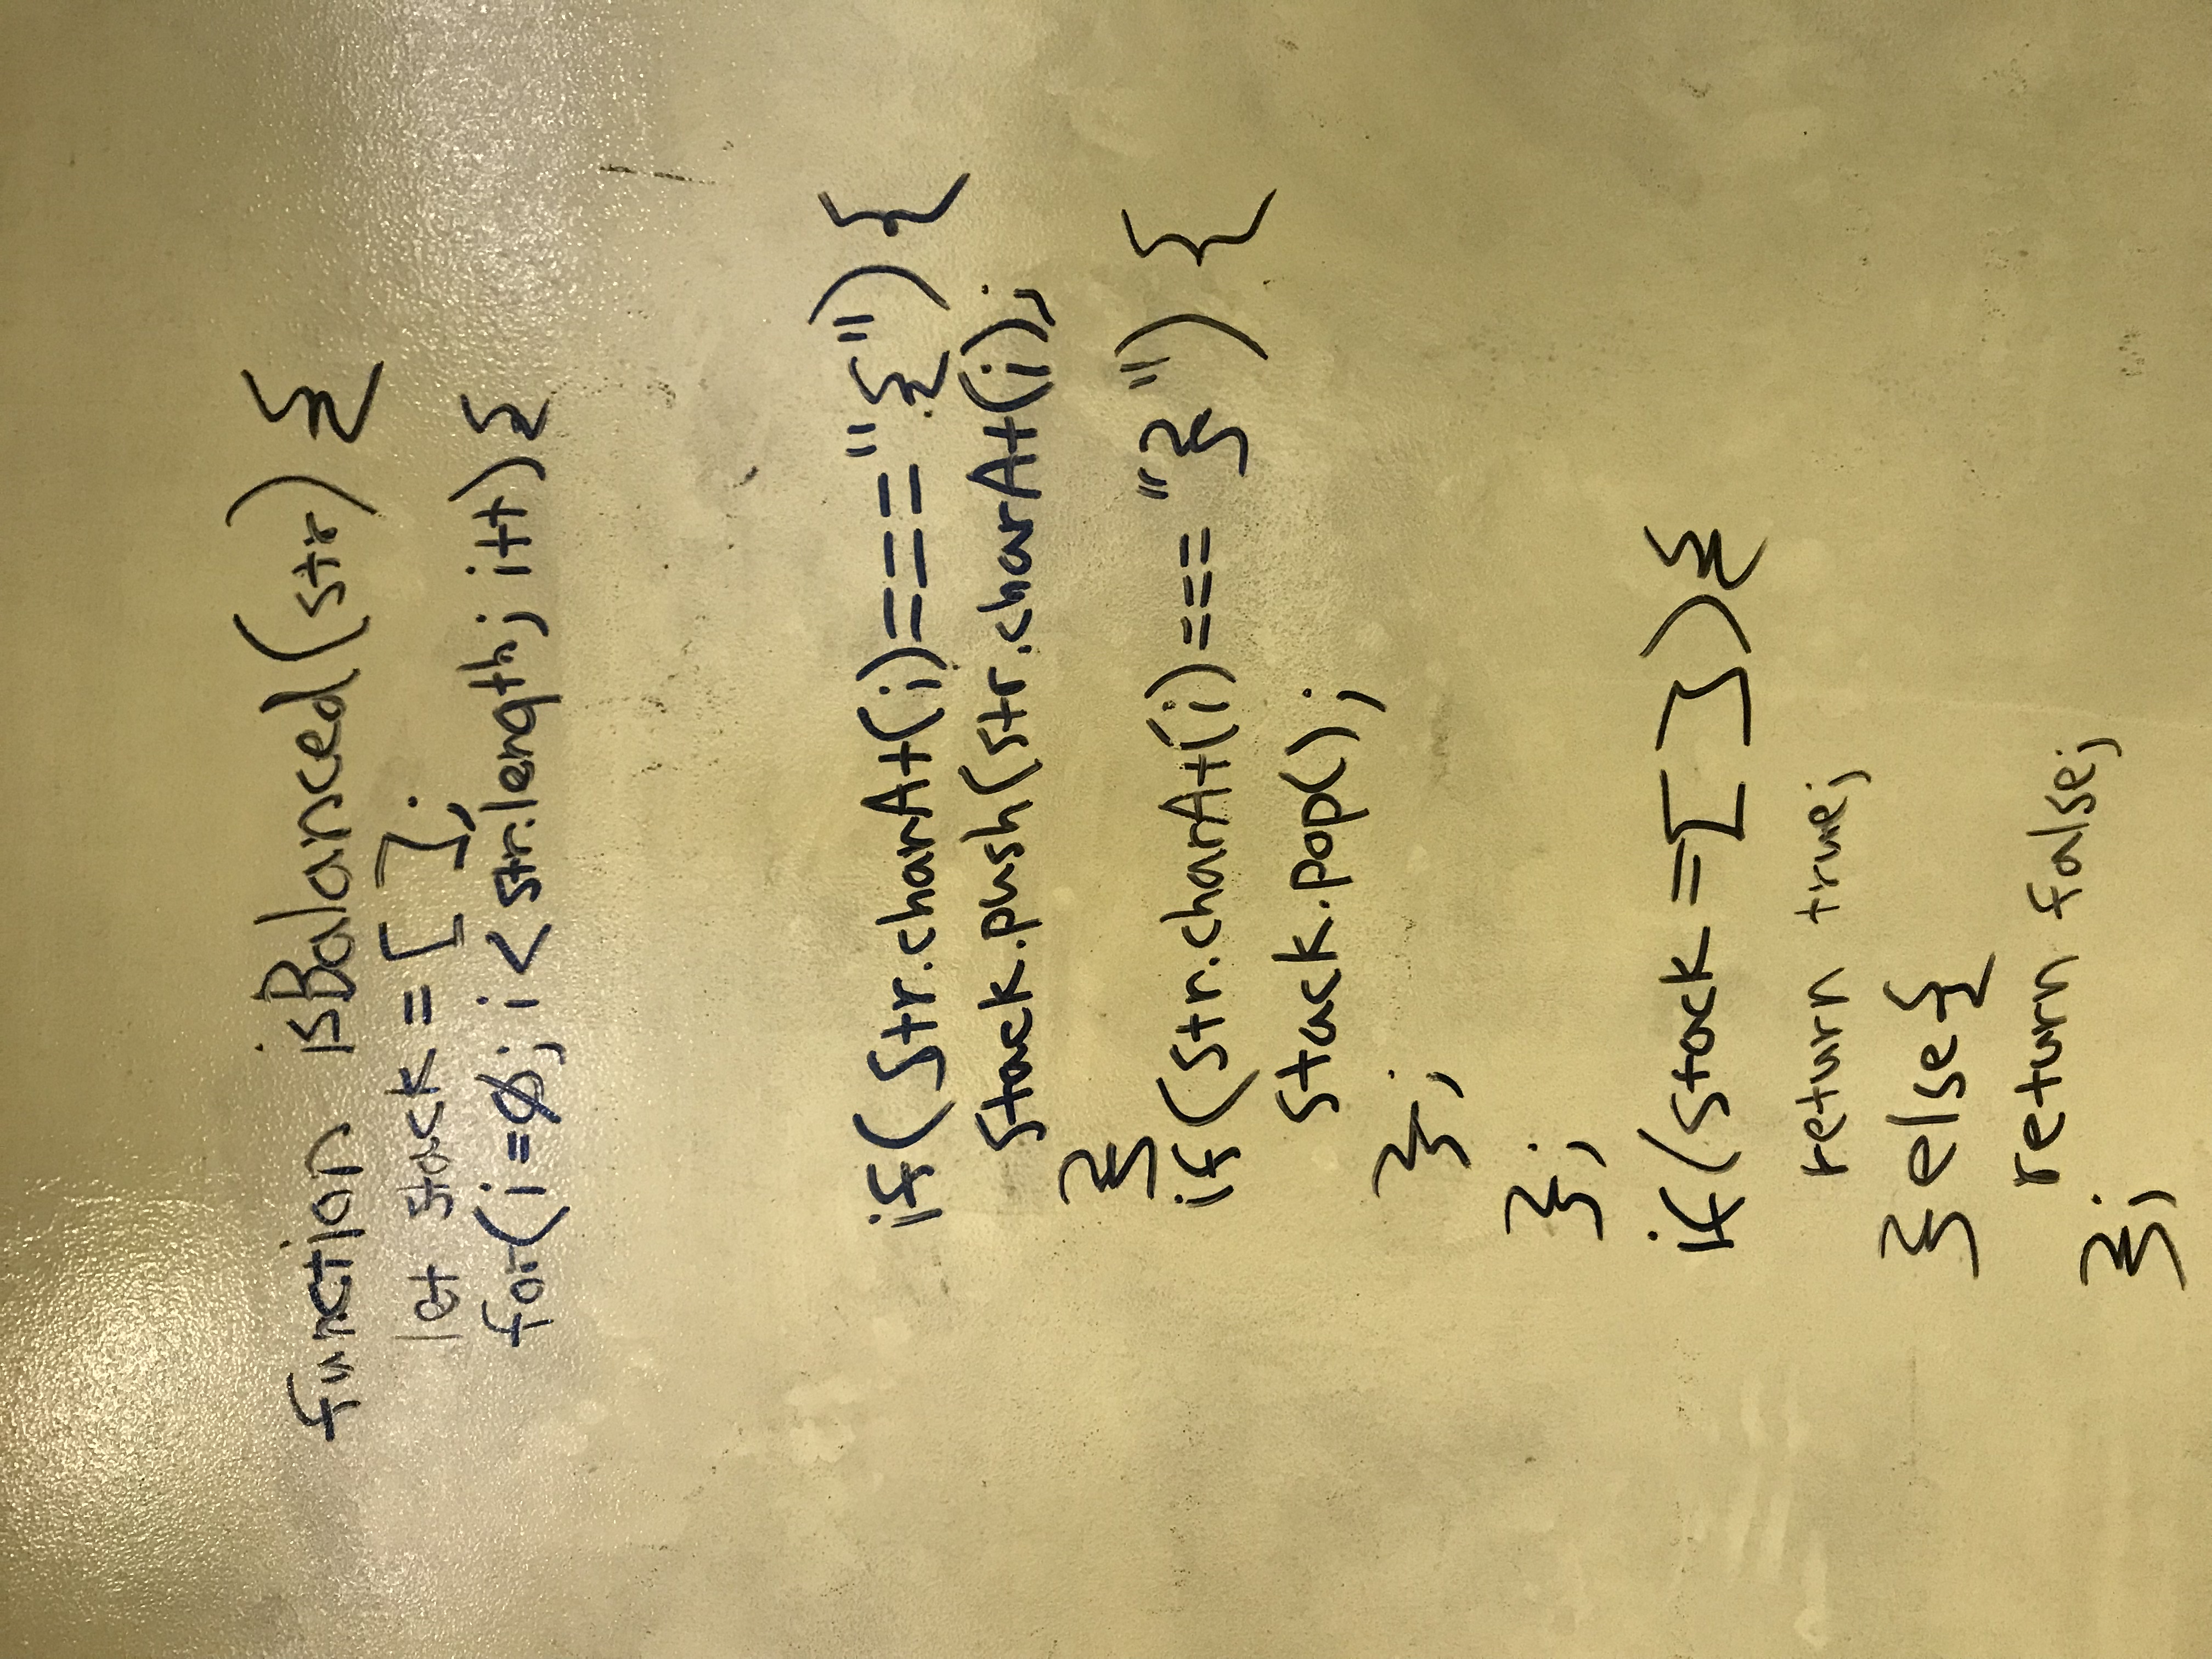 function isBalanced(str) {
let stack = [ ];
for(i=0; i < str.length; i++){
if(str.charAt(i)==="{"){
stack.push(str.charAt(i);
}
if(str.charAt(i)==="}") {
stack.pop();
};
};
if(stack =[ ]){
return true;
}else{
return false;
};